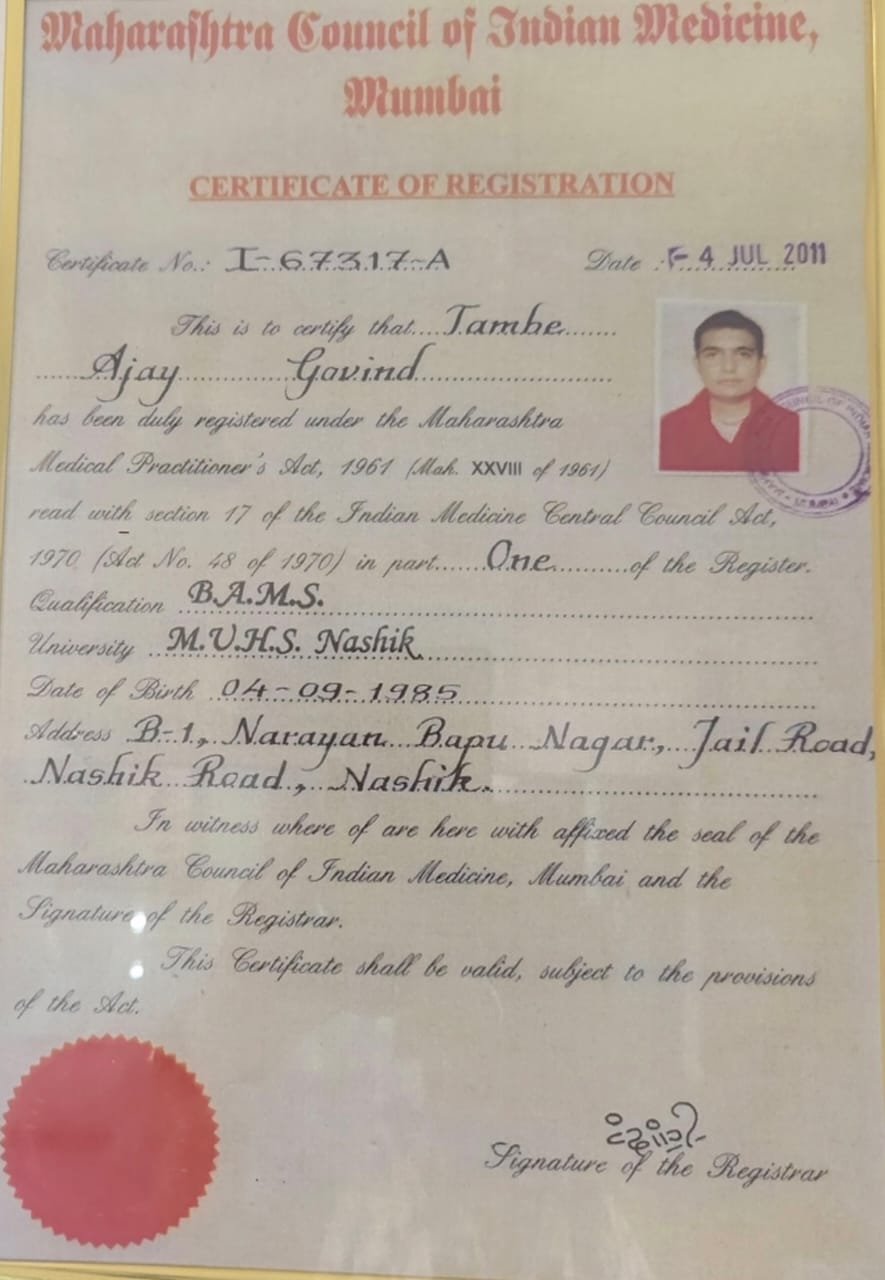 Maharashtra Council of Indian Medicine,
Mumbai
CERTIFICATE OF REGISTRATION
Certificate No.: I-67317-A Date : - 4 JUL 2011
This is to certify that....Tambe.......
......Ajay.............Govind..........................
has been duly registered under the Maharashtra
Medical Practitioner's Act, 1961 (Mah. XXVIII of 1961)
read with section 17 of the Indian Medicine Central Council Act,
1970 (Act No. 48 of 1970) in part......One..........of the Register.
Qualification B.A.M.S.
University M.U.H.S. Nashik
Date of Birth 04-09-1985
Address B-1, Narayan Bapu Nagar, Jail Road,
Nashik Road, Nashik.
In witness where of are here with affixed the seal of the
Maharashtra Council of Indian Medicine, Mumbai and the
Signature of the Registrar.
This Certificate shall be valid, subject to the provisions
of the Act.
Signature of the Registrar